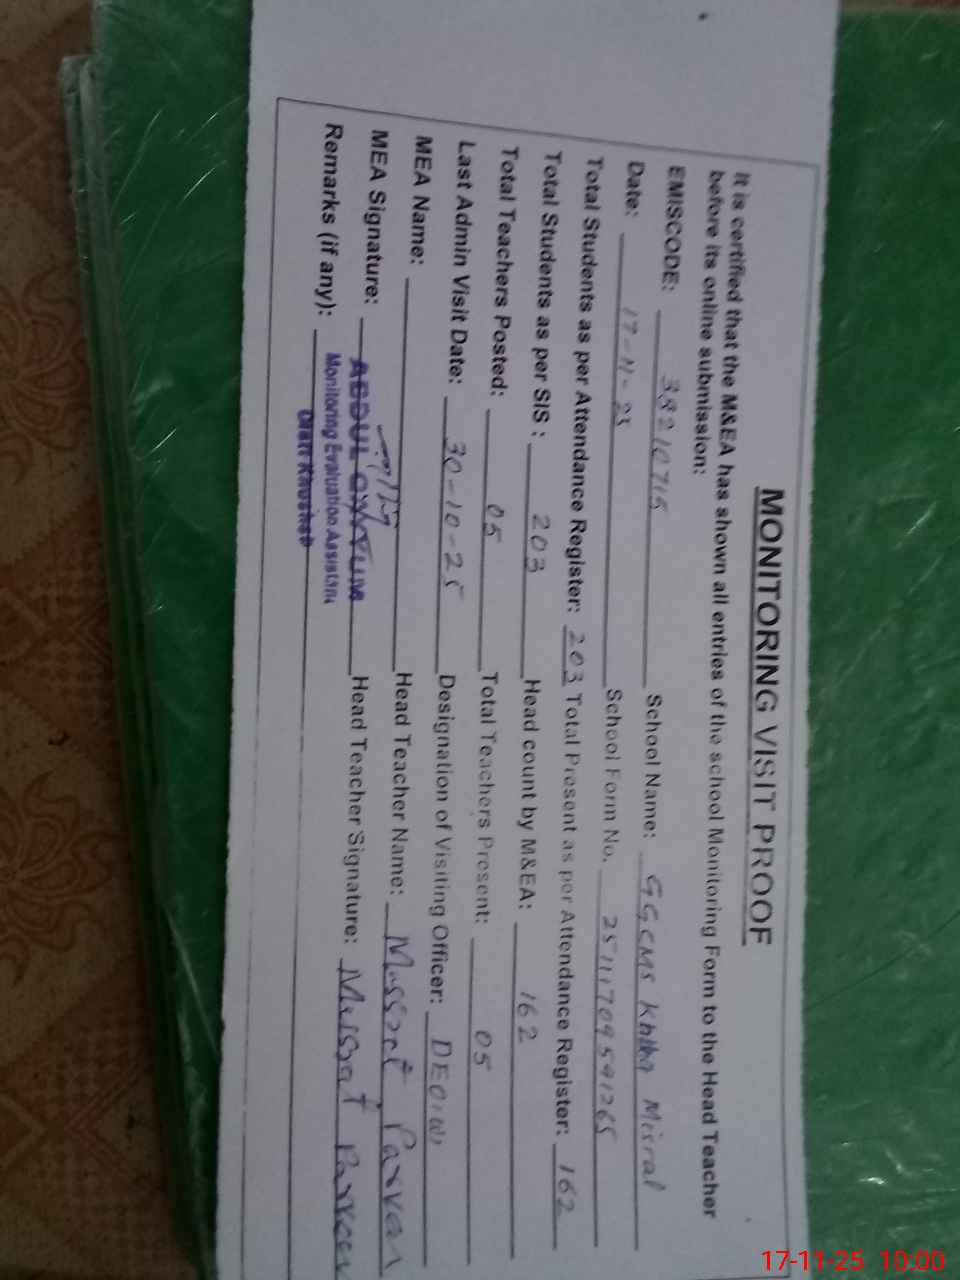 MONITORING VISIT PROOF
It is certified that the M&EA has shown all entries of the school Monitoring Form to the Head Teacher
before its online submission:
EMISCODE: School Name: GGCMS Misral
Date: 17-11-25 School Form No. 25111709591265
Total Students as per Attendance Register: 203 Total Present as per Attendance Register: 162
Total Students as per SIS : 203 Head count by M&EA: 162
Total Teachers Posted: 05 Total Teachers Present: 05
Last Admin Visit Date: 30-10-25 Designation of Visiting Officer:
MEA Name: Head Teacher Name: Mussrat Parveen
MEA Signature: ABDUL QAYYUM Head Teacher Signature: Mussrat Parveen
Remarks (if any): Monitoring Evaluation Assistant
17-11-25 10:00